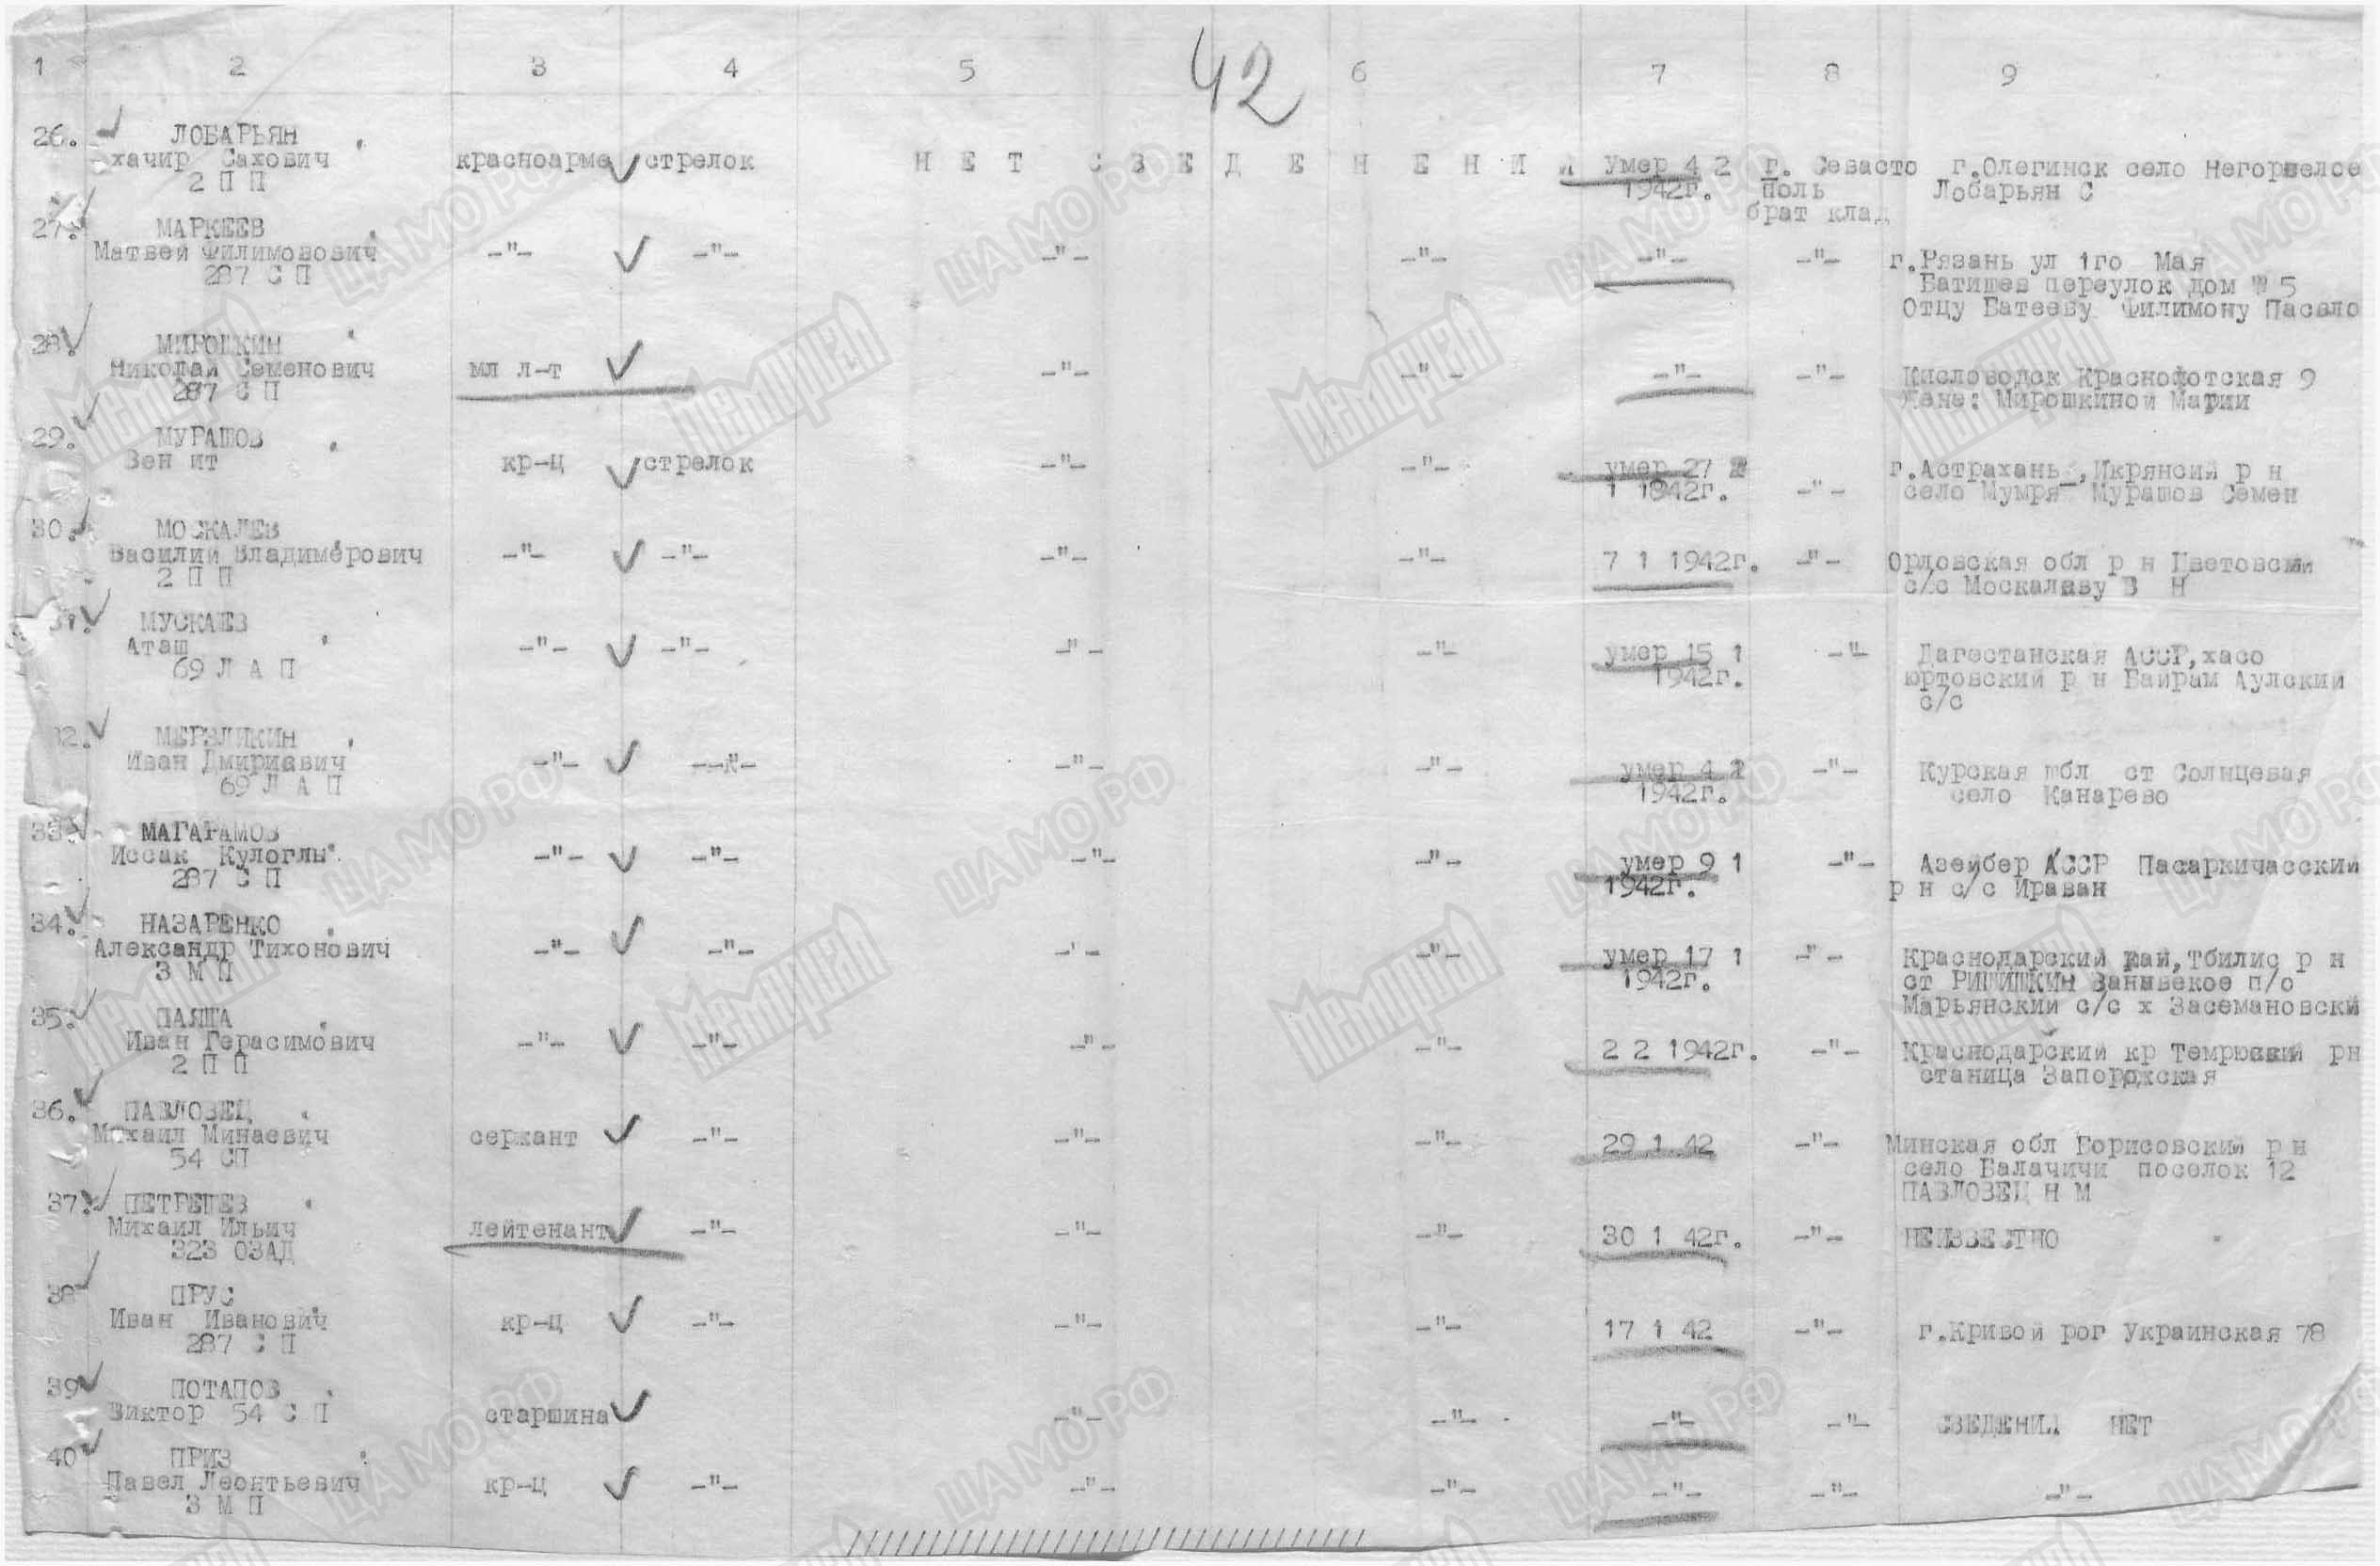 1 2 3 4 5 6 7 8 9
42
26. ЛОБАРЬЯН
хачир Сахович красноарме стрелок Н Е Т С В Е Д Е Н Е Н И И Умер 4 2 г. Севасто г.Олегинск село Негорвелсе
2 П П 1942г. поль Лобарьян С
брат клад
27. МАРКЕЕВ
Матвей Филимовович -"- -"- -"- -"- -"- -"- г.Рязань ул 1го Мая
287 С П Батишев переулок дом № 5
Отцу Батееву Филимону Пасвло
28. МИРОШКИН
Николай Семенович мл л-т -"- -"- -"- -"- Кисловодск Краснофотская 9
287 С П Жене: Мирошкиной Марии
29. МУРАШОВ
Зен ит кр-ц стрелок -"- -"- умер 27 г.Астрахань ,Икрянсий р н
1 1942г. -"- село Мумря Мурашов Семен
30. МОСКАЛЕВ
Василий Владимерович -"- -"- -"- -"- 7 1 1942г. -"- Орловская обл р н Цветовский
2 П П с/с Москалаву В Н
31. МУСКАЕВ
Аташ -"- -"- -"- -"- умер 15 1 -"- Дагестанская АССР,хасо
69 Л А П 1942г. юртовский р н Байрам Аулский
с/с
32. МЕРЗЛИКИН
Иван Дмириевич -"- -"- -"- -"- умер 4 2 -"- Курская обл ст Солнцевая
69 Л А П 1942г. село Канарево
33. МАГАРАМОВ
Иссак Кулоглы -"- -"- -"- -"- умер 9 1 -"- Азейбер АССР Пасаркичасский
287 С П 1942г. р н с/с Ираван
34. НАЗАРЕНКО
Александр Тихонович -"- -"- -'- -"- умер 17 1 -"- Краснодарский кай,Тбилис р н
3 М П 1942г. ст РИШИШКИН п/о
Марьянский с/с х Засемановски
35. ПАЯЛГА
Иван Герасимович -"- -"- -"- -"- 2 2 1942г. -"- Краснодарский кр Темрюкский рн
2 П П станица Запорожская
36. ПАВЛОВЕЦ
Михаил Минаевич сержант -"- -"- -"- 29 1 42 -"- Минская обл Борисовский р н
54 СП село Балачичи поселок 12
ПАВЛОВЕЦ Н М
37. ПЕТРЕПЕВ
Михаил Ильич лейтенант -"- -"- -"- 30 1 42г. -"- НЕИЗВЕСТНО
323 ОЗАД
38 ПРУС
Иван Иванович кр-ц -"- -"- -"- 17 1 42 -"- г.Кривой рог Украинская 78
287 С П
39 ПОТАПОВ
Виктор 54 С П старшина -"- -"- -"- -"- СВЕДЕНИ НЕТ
40 ПРИЗ
Павел Леонтьевич кр-ц -"- -"- -"- -"- -"- -"-
3 М П